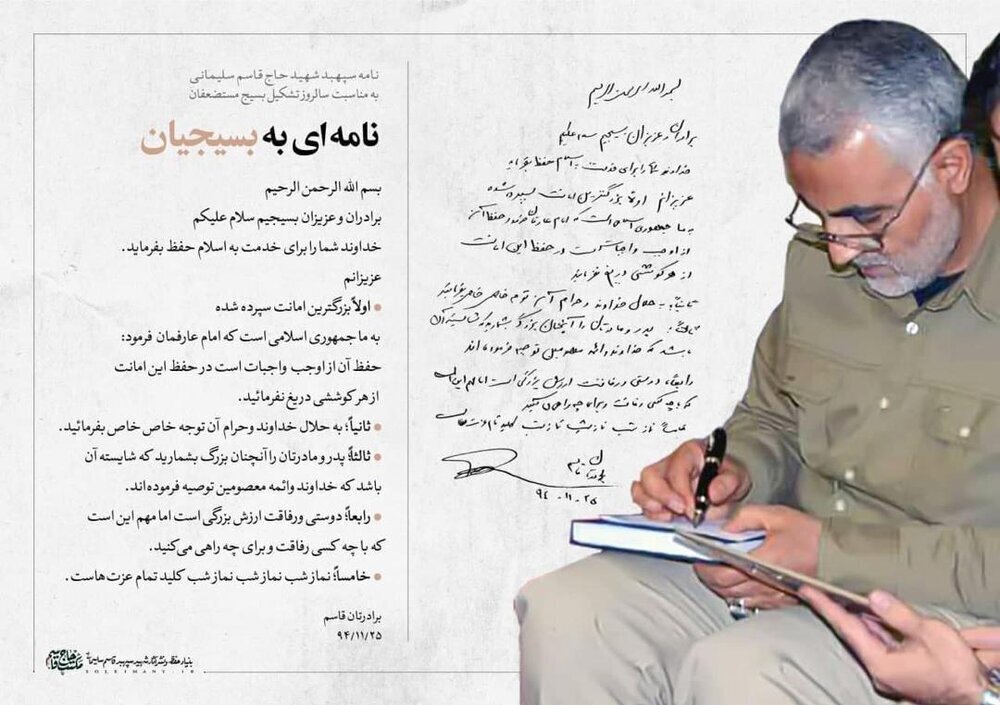 نامه سپهبد شهید حاج قاسم سلیمانی
به مناسبت سالروز تشکیل بسیج مستضعفان
نامه ای به بسیجیان
بسم الله الرحمن الرحیم
برادران و عزیزان بسیجیم سلام علیکم
خداوند شما را برای خدمت به اسلام حفظ بفرماید.
عزیزانم
• اولاً بزرگترین امانت سپرده شده
به ما جمهوری اسلامی است که امام عارفمان فرمود:
حفظ آن از اوجب واجبات است در حفظ این امانت
از هر کوششی دریغ نفرمائید.
• ثانیاً؛ به حلال خداوند وحرام آن توجه خاص خاص بفرمائید.
• ثالثاً؛ پدر و مادرتان را آنچنان بزرگ بشمارید که شایسته آن
باشد که خداوند وائمه معصومین توصیه فرموده‌اند.
• رابعاً؛ دوستی ورفاقت ارزش بزرگی است اما مهم این است
که با چه کسی رفاقت و برای چه راهی می‌کنید.
• خامساً؛ نماز شب نماز شب نماز شب کلید تمام عزت هاست.
برادرتان قاسم
۹۴/۱۱/۲۵
بنیاد حفظ و نشر آثار شهید سپهبد قاسم سلیمانی
مکتب حاج قاسم
SOLEIMANY.IR
بسم الله الرحمن الرحیم
برادران و عزیزان بسیجیم سلام علیکم
خداوند شما را برای خدمت به اسلام حفظ بفرماید
عزیزانم اولاً بزرگترین امانت سپرده شده
به ما جمهوری اسلامی است که امام عارفمان فرمود حفظ آن
از اوجب واجبات است در حفظ این امانت
از هر کوششی دریغ نفرمائید
ثانیاً؛ به حلال خداوند و حرام آن توجه خاص خاص بفرمائید
ثالثاً؛ پدر و مادرتان را آنچنان بزرگ بشمارید که شایسته آن
باشد که خداوند وائمه معصومین توصیه فرموده‌اند
رابعاً؛ دوستی ورفاقت ارزش بزرگی است اما مهم این است
که با چه کسی رفاقت و برای چه راهی می‌کنید
خامساً نماز شب نماز شب نماز شب کلید تمام عزت هاست
برادرتان قاسم
۹۴-۱۱-۲۵